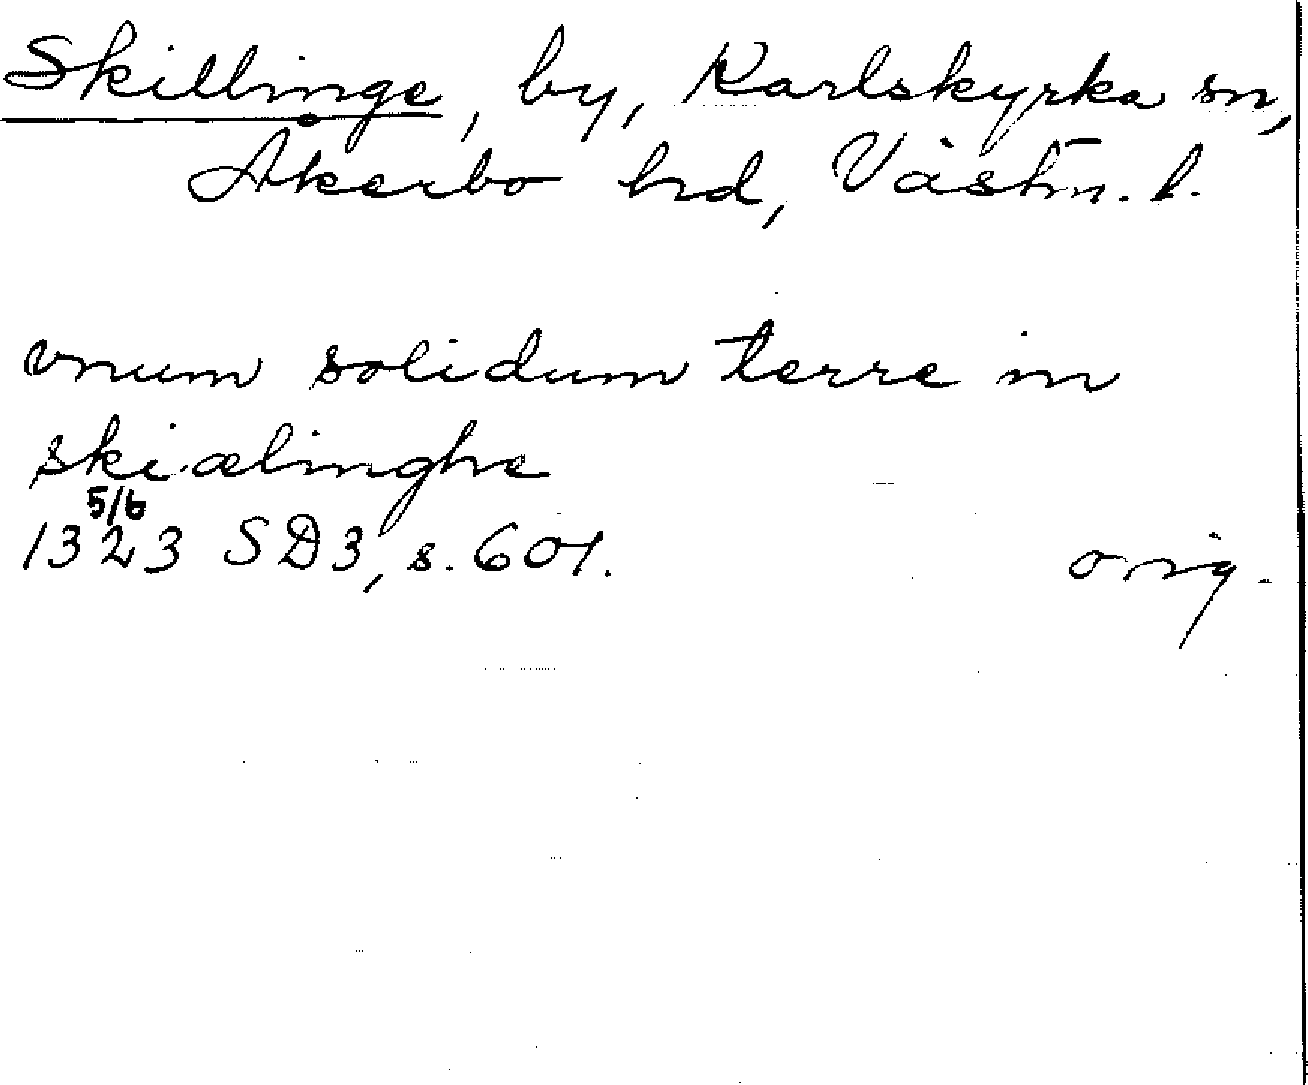 Skillinge, by, Karlskyrka sn,
Åkerbo hd, Västm. l.
vnum solidum terre in
skiælinghe
5/6
1323 SD3, s. 601.
orig.